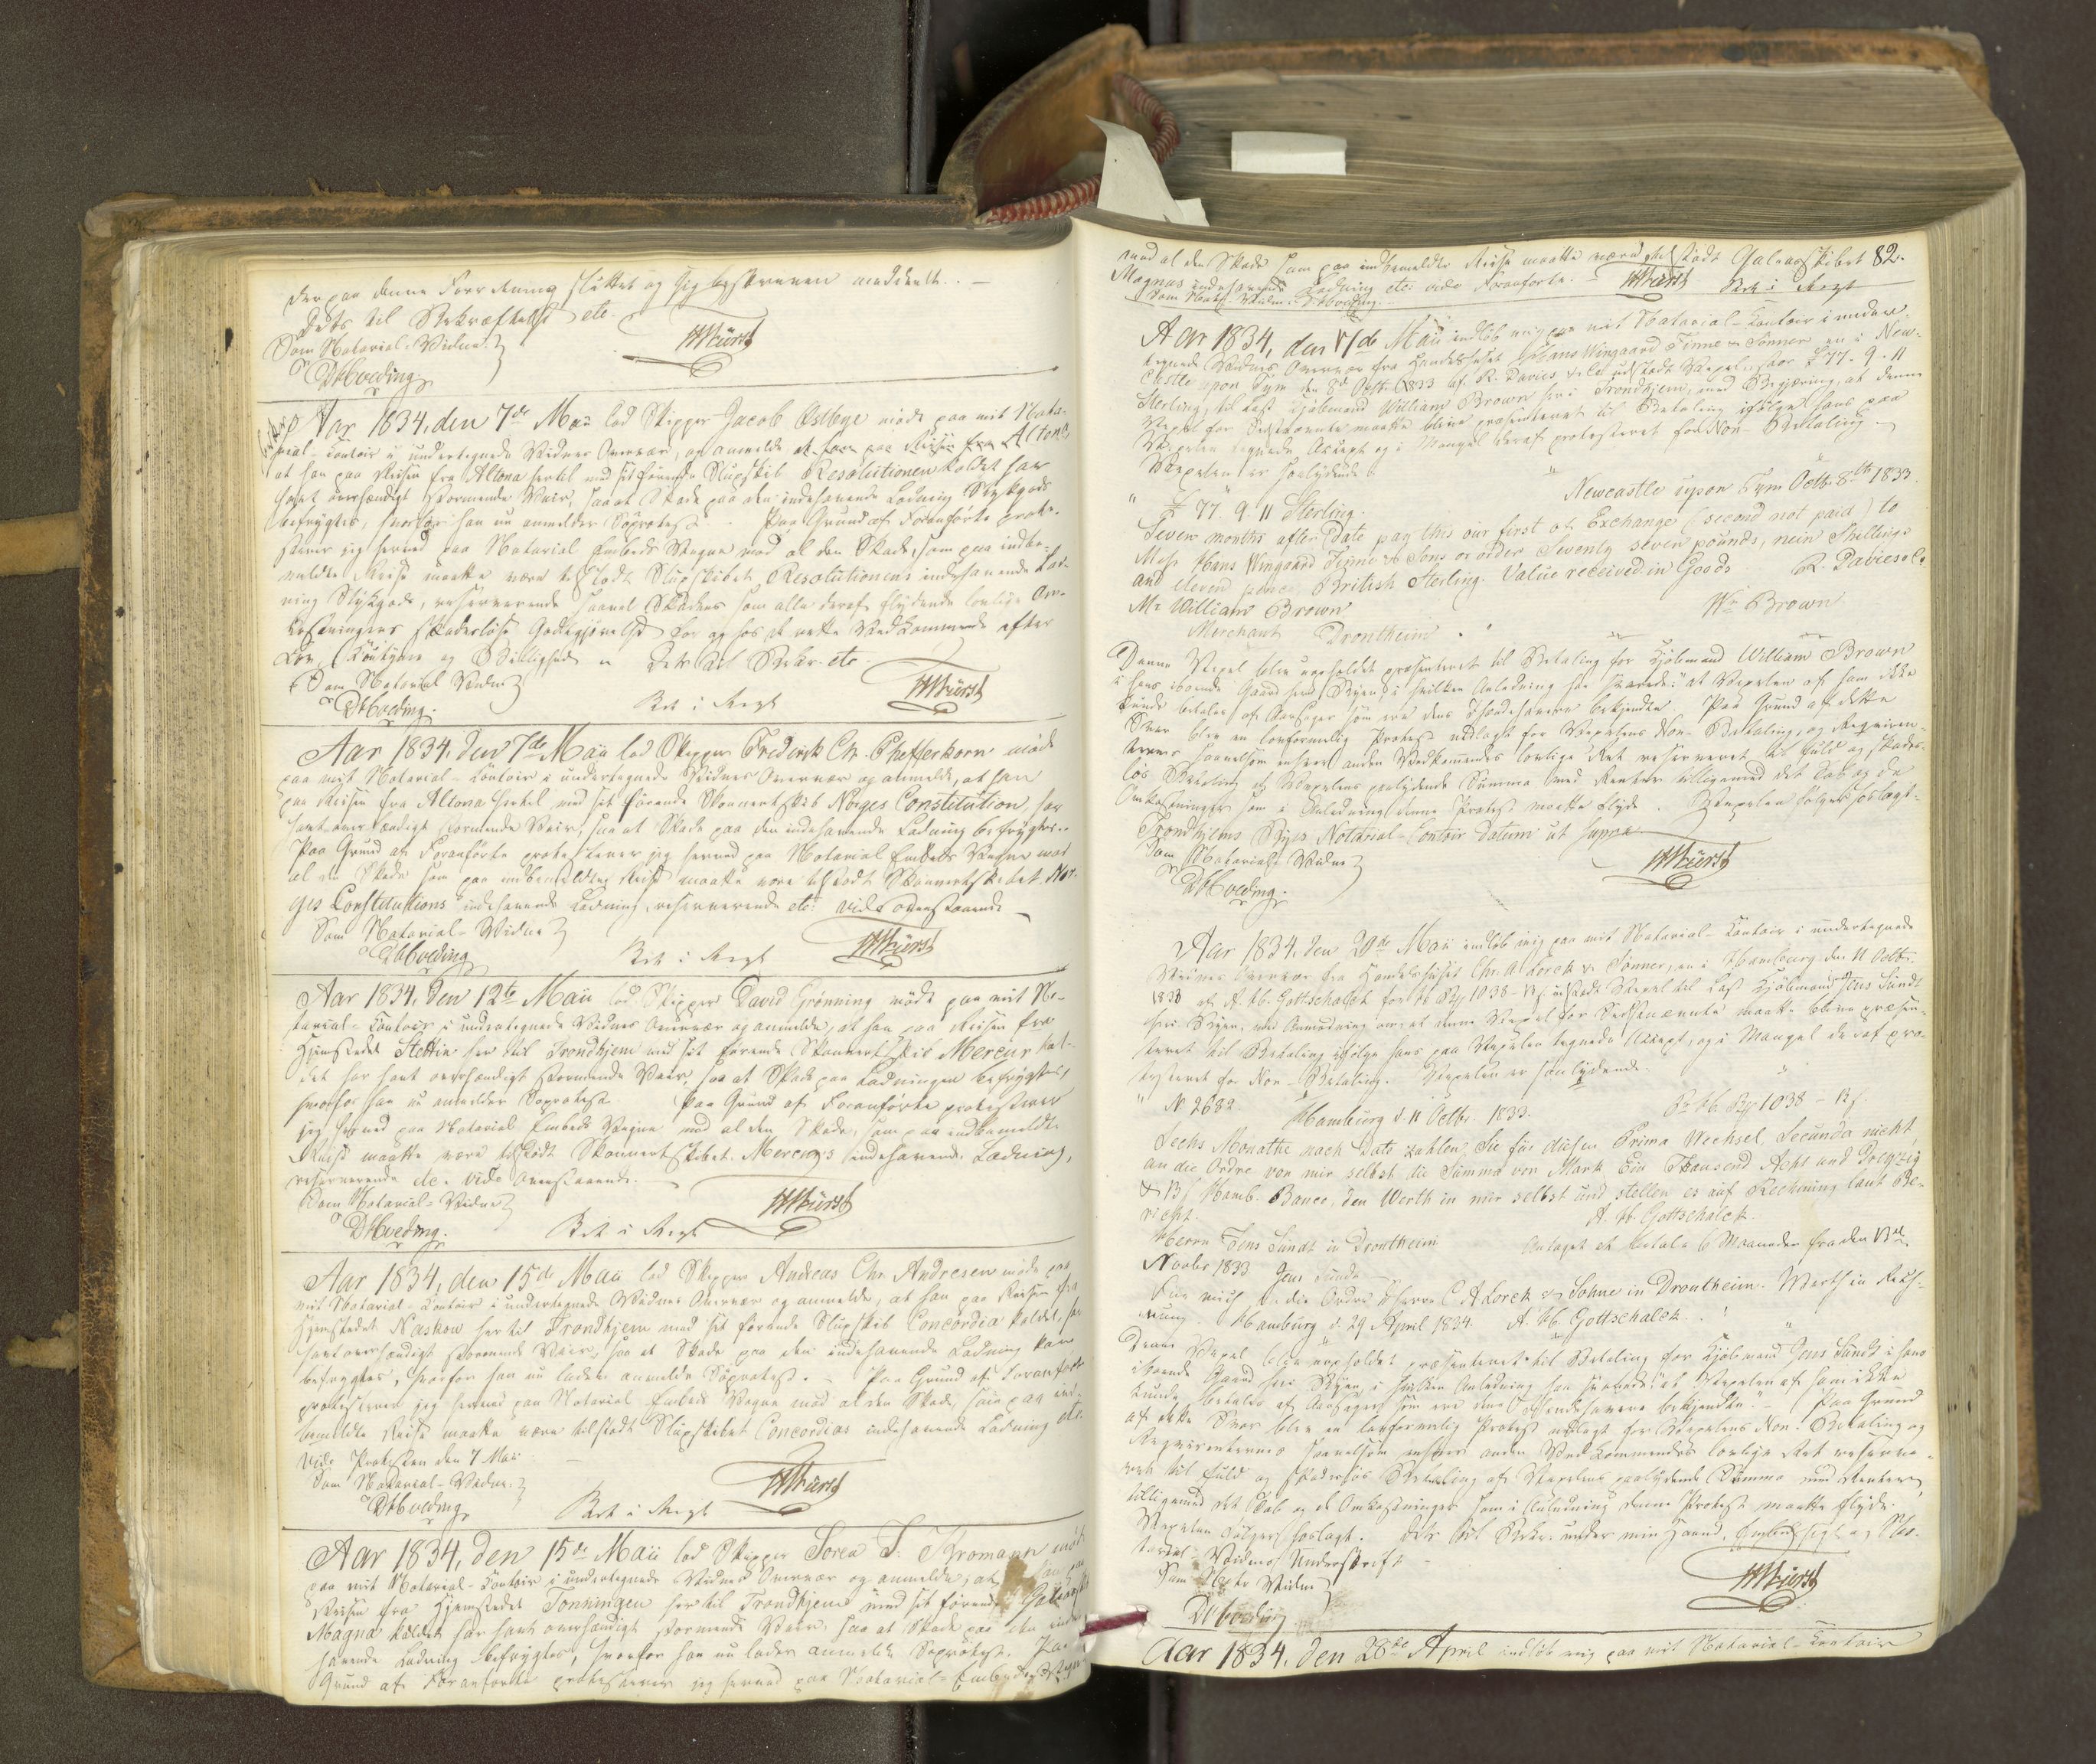 derpaa denne Forretning sluttet og sig beskreven meddeelt. –
Dets til Bekræftelse etc.
Som Notarial-Vidne
DHoeding.
Aar 1834, den 7de Maii lod Skipper Jacob Østbye møde paa mit Nota-
rial-Contoir i undertegnede Vidnes Overvær, og anmelde at han paa Reisen fra Altona
at han paa Reisen fra Altona hertil med sit førende Slupskib Resolutionen kaldet har
havt overhændigt stormende Veir, saa at Skade paa den indehavende Ladning Stykgods
befrygtes, hvorfor han nu anmelder Søprotest. Paa Grund af Foranførte prote-
sterer jeg herved paa Notarial Embeds Vegne mod al den Skade, som paa indbe-
meldte Reise maatte være tilstødt Slupskibet Resolutionens indehavende Lad-
ning Stykgods, reserverende saavel Skadens som alle deraf flydende lovlige Om-
kostningers skadesløse Godtgjørelse for og hos de rette Vedkommende efter
Lov, Coutyme og Billighed. Dets til Bekr. etc.
Som Notarial Vidne
DHoeding.
Aar 1834, den 7de Maii lod Skipper Frederick Chr. Pfefferkorn møde
paa mit Notarial-Contoir i undertegnede Vidnes Overvær og anmelde, at han
paa Reisen fra Altona hertil med sit førende Skonnertskib Norges Constitution, har
havt overhændigt stormende Veir, saa at Skade paa den indehavende Ladning befrygtes.
Paa Grund af Foranførte protesterer jeg herved paa Notarial Embeds Vegne mod
al den Skade som paa indbemeldte Reise maatte være tilstødt Skonnertskibet Nor-
ges Constitutions indehavende Ladning, reserverende etc. vide ovenstaaende –
Som Notarial-Vidne
DHoeding
Aar 1834, den 12te Maii lod Skipper David Grønning møde paa mit No-
tarial-Contoir i undertegnede Vidnes Overvær og anmelde, at han paa Reisen fra
Hjemstedet Stettin her til Trondhjem med sit førende Skonnertskib Mercur kal-
det har havt overhændigt stormende Veir, saa at Skade paa Ladningen befrygtes,
hvorfor han nu anmelder Søprotest. Paa Grund af Foranførte protesterer
jeg herved paa Notarial Embeds Vegne mod al den Skade, som paa indbemeldte
Reise maatte være tilstødt Skonnertskibet Mercurs indehavende Ladning,
reserverende etc. vide ovenstaaende.
Som Notarial-Vidne
DHoeding.
Aar 1834, den 15de Maii lod Skipper Andreas Chr. Andresen møde paa
mit Notarial-Contoir i undertegnede Vidnes Overvær og anmelde, at han paa Reisen fra
Hjemstedet Naskow her til Trondhjem med sit førende Slupskib Concordia kaldet, har
havt overhændigt stormende Veir, saa at Skade paa den indehavende Ladning kan
befrygtes, hvorfor han nu lader anmelde Søprotest. – Paa Grund af Foranførte
protesterer jeg herved paa Notarial Embeds Vegne mod al den Skade, som paa ind-
bemeldte Reise maatte være tilstødt Slupskibet Concordias indehavende Ladning etc.
vide Protesten den 7 Maii
Som Notarial-Vidne
DHoeding
Aar 1834, den 15de Maii lod Skipper Søren S. Kromann møde
paa mit Notarial-Contoir i undertegnede Vidnes Overvær og anmelde, at han paa
Reisen fra Hjemstedet Tonningen her til Trondhjem med sit førende Galeas
Magna kaldet har havt overhændigt stormende Veir, saa at Skade paa den inde-
havende Ladning befrygtes, hvorfor han nu lader anmelde Søprotest. Paa
Grund af Foranførte protesterer jeg herved paa Notarial-Embeds Vegne
mod al den Skade som paa indbemeldte Reise maatte være tilstødt Galeasskibet 82.
Magnas indehavende Ladning etc. vide Foranførte.
Som Notr. Vidne: DHoeding.
Aar 1834, den 17de Maii indløb mig paa mit Notarial-Contoir i under-
tegnede Vidnes Overvær fra Handelshuset Hans Wingaard Finne & Sønner en i New-
castle upon Tyne den 8de Octb. 1833 af R. Davies & Co udstædt Vexel stor £ 77. 9. 11
Sterling, til Last Kjøbmand William Brown her i Trondhjem, med Begjæring, at denne
Vexel for Vedkommende maatte blive præsenteret til Betaling ifølge hans paa
Vexelen tegnede Accept og i Mangel deraf protesteret for Non-Betaling –
Vexelen er saalydende
Newcastle upon Tyne Octb. 8th 1833.
£ 77. 9. 11 Sterling.
Seven months after Date pay this our first of Exchange (second not paid) to
Mess Hans Wingaard Finne & Sons or order Seventy seven pounds, nein Shillings
and eleven pence British Sterling. Value received in Goods
R. Davies & Co
Mr William Brown
Wm Brown
Merchant Drontheim
Denne Vexel blev uopholdet præsenteret til Betaling for Kjøbmand William Brown
i hans iboende Gaard her i Byen, i hvilken Anledning han svarede: "at Vexelen af ham ikke
kunde betales af Aarsager som ere dens Ihændehavere bekjendte. Paa Grund af dette
Svar blev en lovformelig Protest nedlagt for Vexelens Non-Betaling, og Requiren-
ternes saavelsom enhver anden Vedkommendes lovlige Ret reserveret til fuld og skades-
løs Betaling af Vexelens paalydende Summa med Renter tilligemed det Tab og de
Omkostninger som i Anledning denne Protest maatte flyde. Vexelen følger heftet
Trondhjems Byes Notarial-Contoir Datum ut supra
Som Notarial Vidne
DHoeding.
Aar 1834, den 20de Maii indløb mig paa mit Notarial-Contoir i undertegnede
Vidnes Overvær fra Handelshuset Chr. A. Lorck & Sønner, en i Hamburg den 11 Octbr.
1833 af A. H. Gottschalck for 1038 – 13 ß udstædt Vexel til Last Kjøbmand Jens Sundt
her i Byen, med Anmodning om, at denne Vexel for Vedkommende maatte blive præsen-
teret til Betaling ifølge hans paa Vexelen tegnede Accept, og i Mangel deraf pro-
testeret for Non-Betaling. Vexelen er saalydende.
N 2682. Hamburg d. 11 Octbr. 1833. 1038 – 13 ß.
Sechs Monathe nach Dato zahlen Sie für diesen Prima Wechsel, Secunda nicht,
an die Ordre von mir selbst die Summa von Mark Ein Thausend Acht und Dreyzig
& 13 ß Hamb. Banco, den Werth in mir selbst und stellen es auf Rechnung laut Be-
richt.
A. H. Gottschalck
Herrn Jens Sundt in Drontheim
Antaget at betale 6 Maaneder fra den 13de
Novbr 1833 Jens Sundt
Für mich an die Ordre d Herrn C A Lorck & Söhne in Drontheim. Werth in Rech-
nung. Hamburg d. 29 April 1834. A. H. Gottschalck.
Denne Vexel blev uopholdet præsenteret til Betaling for Kjøbmand Jens Sundt i hans
iboende Gaard her i Byen i hvilken Anledning han svarede: "at Vexelen af ham ikke
kunde betales af Aarsager som ere dens Ihændehavere bekjendte." – Paa Grund
af dette Svar blev en lovformelig Protest nedlagt for Vexelens Non-Betaling og
Requirenternes saavelsom enhver anden Vedkommendes lovlige Ret reserve-
ret til fuld og skadesløs Betaling af Vexelens paalydende Summa med Renter
tilligemed det Tab og de Omkostninger som i Anledning denne Protest maatte flyde.
Vexelen følger heftet. Dets til Bekr. under min Haand, Embedssegl og No-
tarial-Vidnes Underskrift –
Som Notr Vidne
DHoeding
Aar 1834, den 28de April indløb mig paa mit Notarial-Contoir